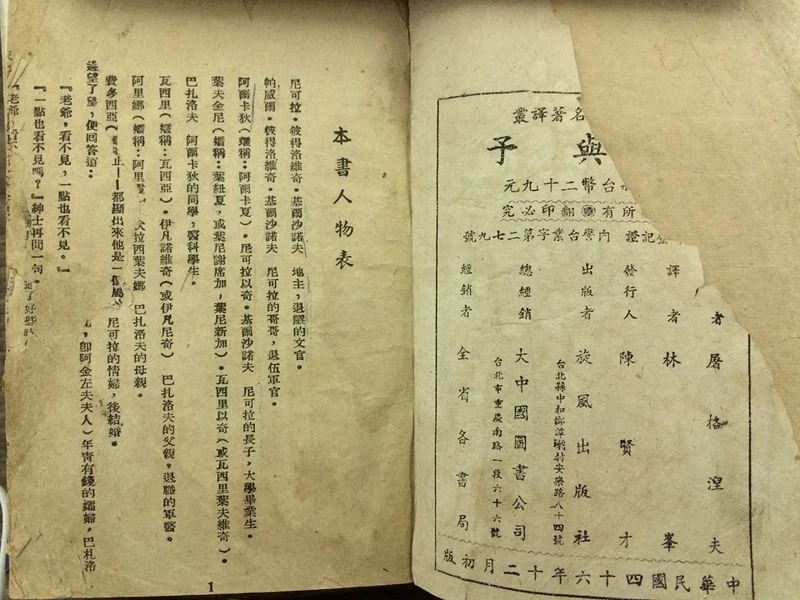 名著譯叢
與子
台幣二十九元
所有翻印必究
記證 內警台業字第二七九號
者 屠格涅夫
譯者 林峯
發行人 陳賢才
出版者 旋風出版社
台北縣中和鄉潭墘村安樂路八十四號
總經銷 大中國圖書公司
台北市重慶南路一段六十六號
經銷者 全省各書局
中華民國四十六年十二月初版
本書人物表
尼可拉。彼得洛維奇。基爾沙諾夫 地主,退職的文官。
帕威爾。彼得洛維奇。基爾沙諾夫 尼可拉的哥哥,退伍軍官。
阿爾卡狄(孎稱:阿爾卡夏)。尼可拉以奇。基爾沙諾夫 尼可拉的長子,大學畢業生。
葉夫金尼(孎稱:葉紐夏,或葉尼謝席加,葉尼新加)。瓦西里以奇(或瓦西里葉夫維奇)。
巴扎洛夫 阿爾卡狄的同學,醫科學生。
瓦西里(孎稱:瓦西亞)。伊凡諾維奇(或伊凡尼奇) 巴扎洛夫的父親,退職的軍醫。
阿里娜(孎稱:阿里 拉西葉夫娜 巴扎洛夫的母親。
費多西亞( 止——都顯出來他是一個屬 尼可拉的情婦,後結婚。
邊望了望,便回答道: 即阿金左夫夫人)年青有錢的孀婦,巴札洛
『老爺,看不見,一點也看不見。』
『一點也看不見嗎?』紳士再問一句。
『老爺
1